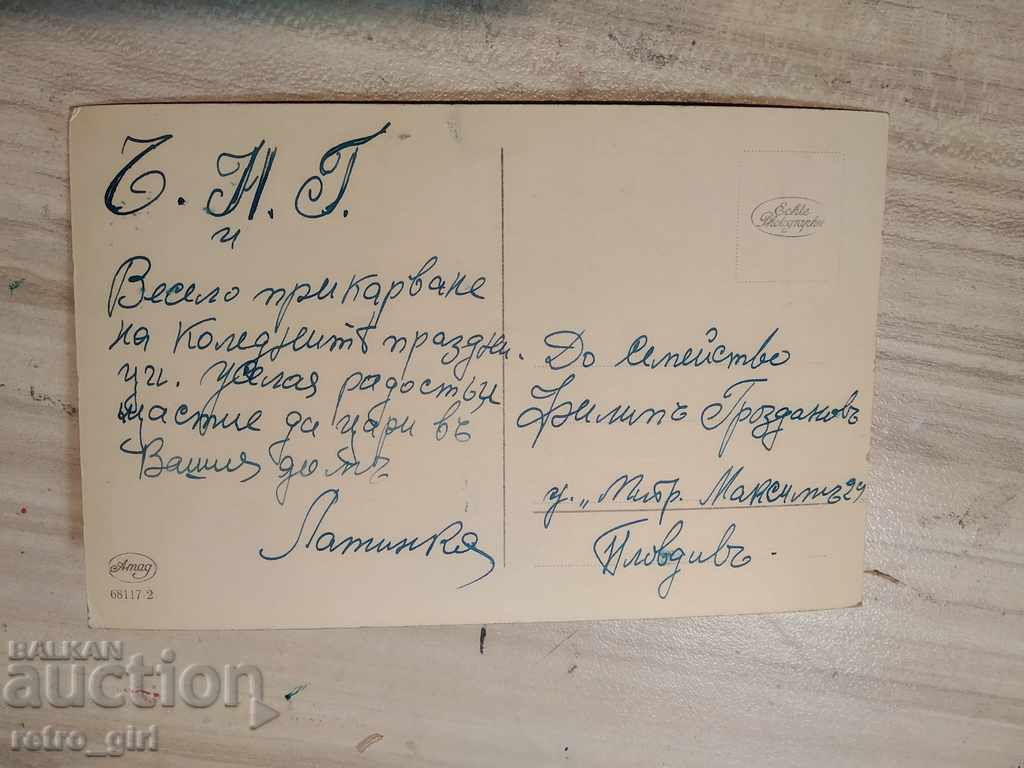 Ч. Н. Г.
и
Весело прикарване
на Коледнитѣ праздни-
ци. желая радость и
щастие да цари въ
Вашия домъ
Латинка
Amag
68117/2
Echte
Photographie
До семейство
Филипъ Гроздановъ
у. „Митр. Максимъ 24
Пловдивъ.
BALKAN
auction
retro_girl